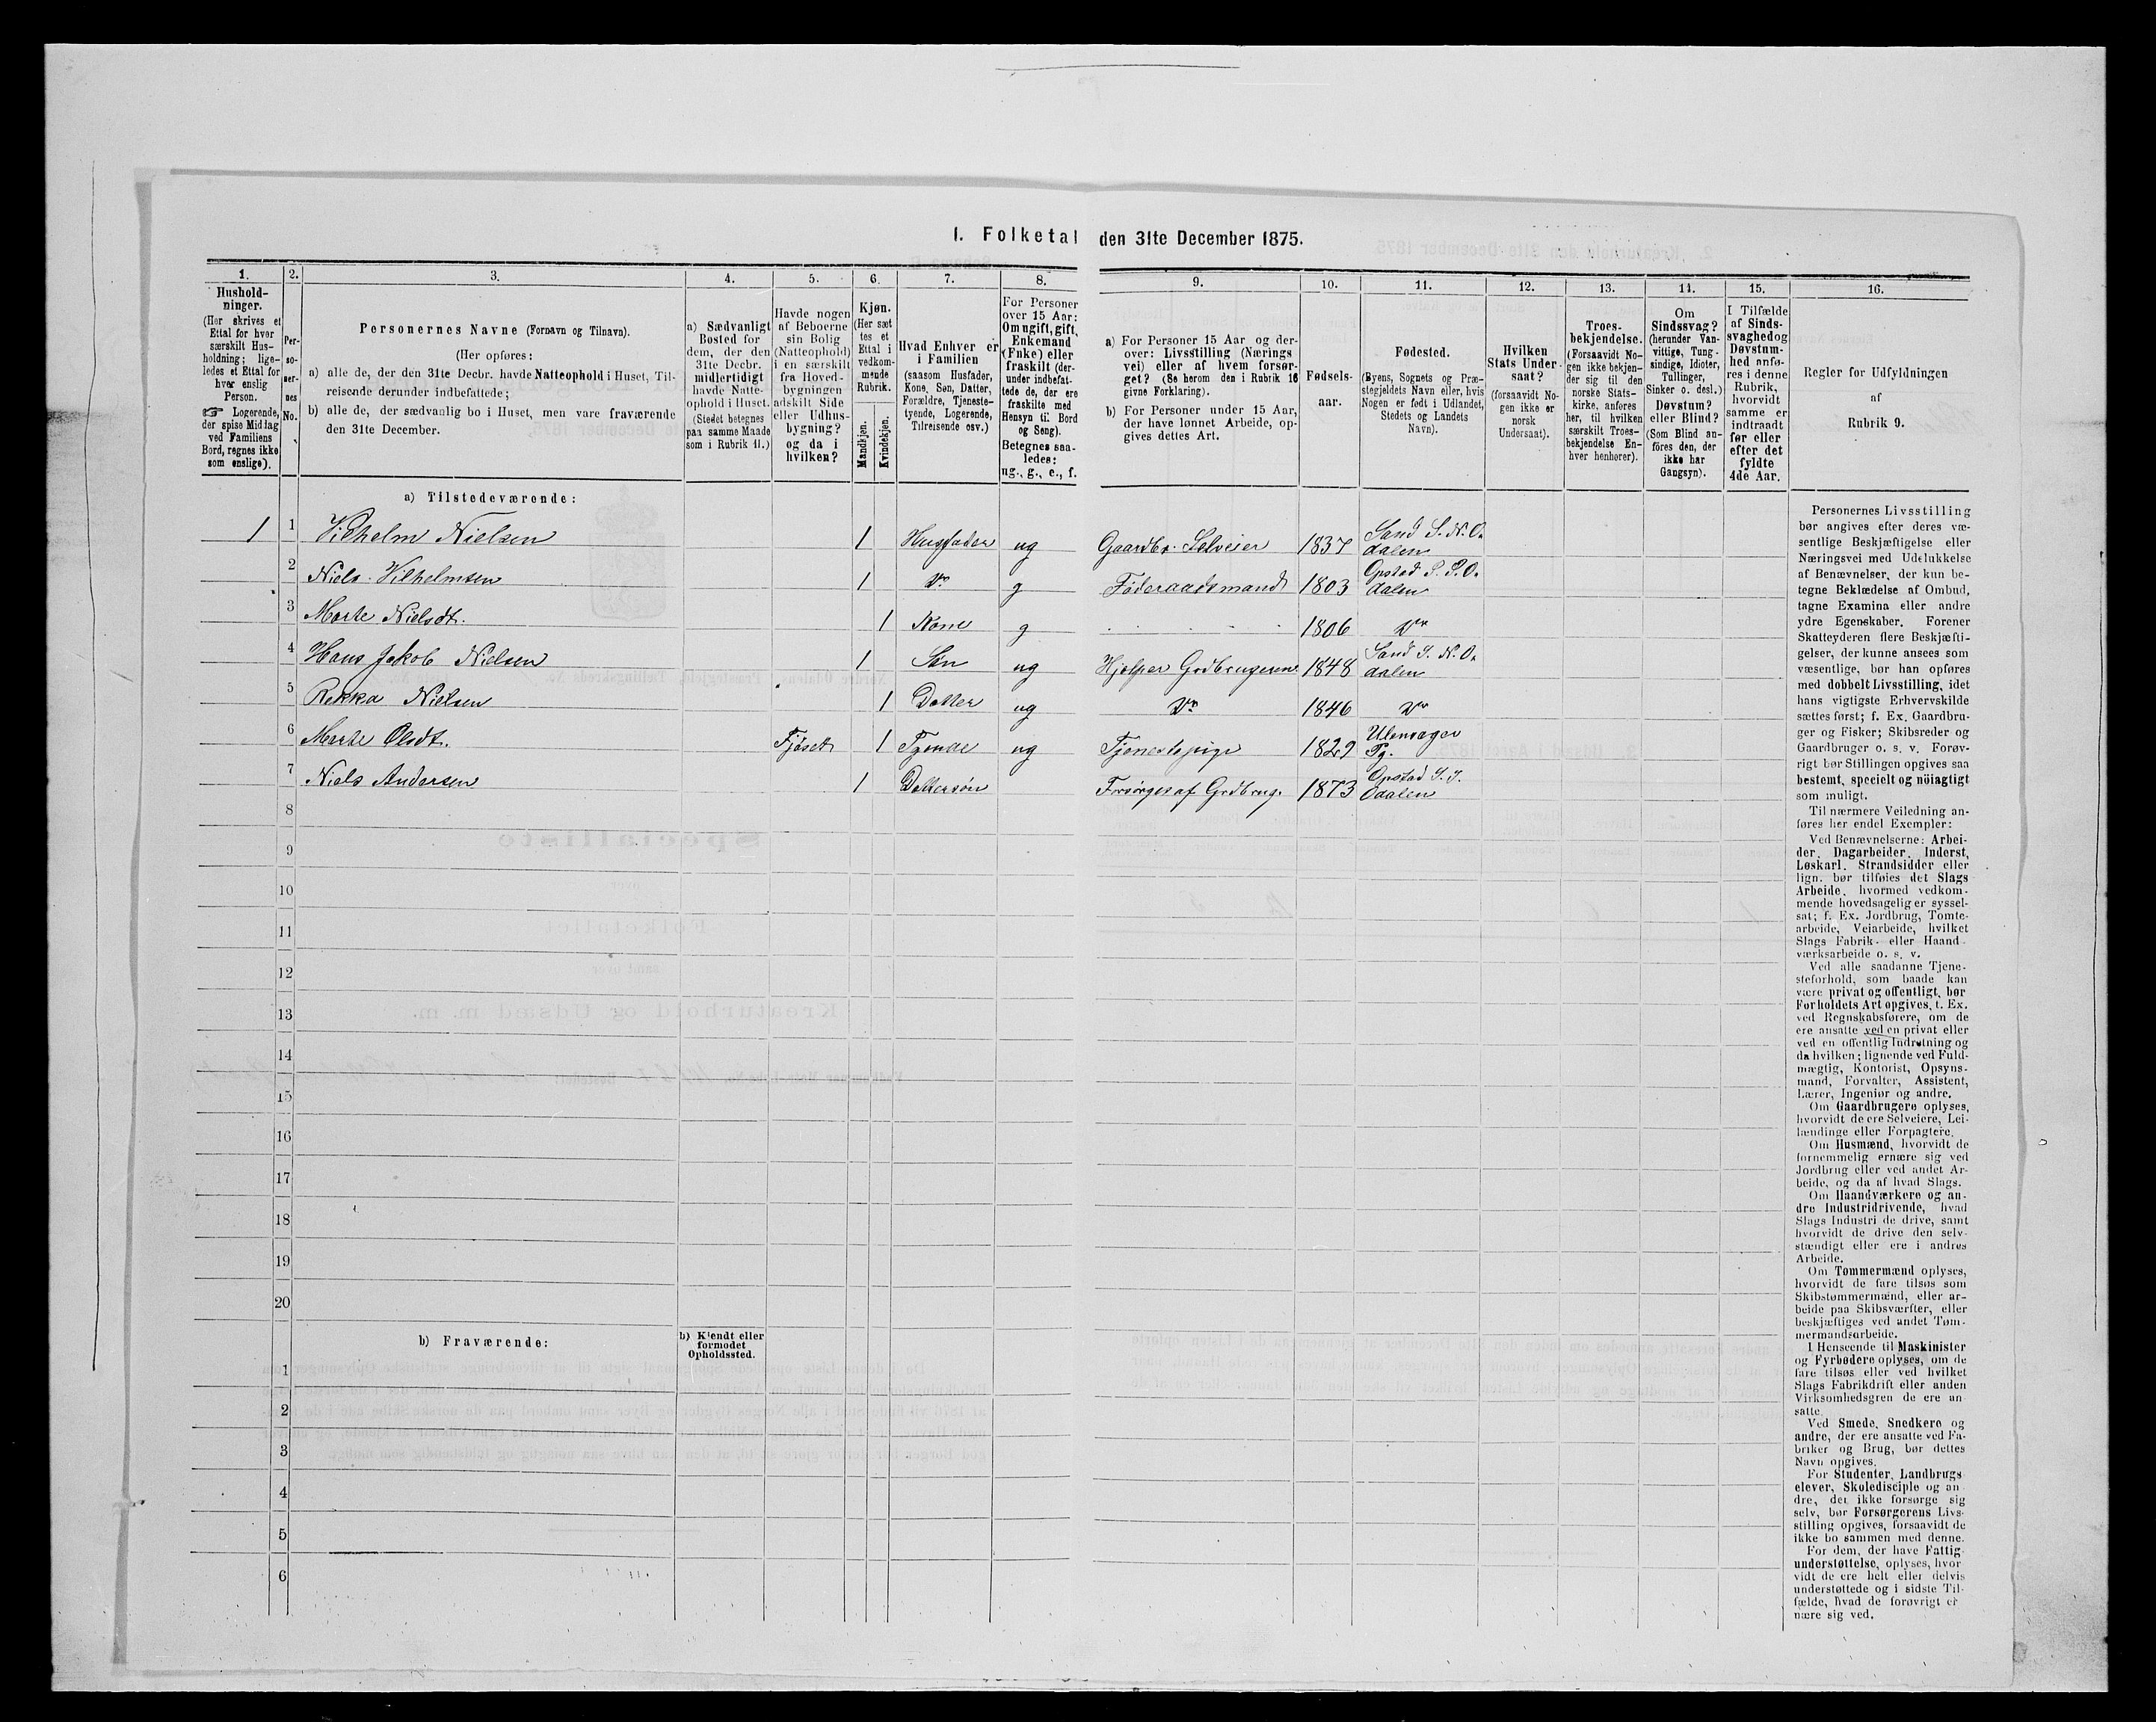 1. Folketal den 31te December 1875.
1.
Hushold-
ninger.
(Her skrives et
Ettal for hver
særskilt Hus-
holdning; lige-
ledes et Ettal for
hver enslig
Person.
☞ Logerende,
der spise Middag
ved Familiens
Bord, regnes ikke
som enslige).
2.
Per-
so-
ner-
nes
No.
3.
Personernes Navne (Fornavn og Tilnavn).
(Her opføres:
a) alle de, der den 31te Decbr. havde Natteophold i Huset, Til-
reisende derunder indbefattede;
b) alle de, der sædvanlig bo i Huset, men vare fraværende
den 31te December.
4.
a) Sædvanligt
Bosted for
dem, der den
31te Decbr.
midlertidigt
havde Natte-
ophold i Huset.
(Stedet betegnes
paa samme Maade
som i Rubrik 11.)
5.
Havde nogen
af Beboerne
sin Bolig
(Natteophold)
i en særskilt
fra Hoved-
bygningen
adskilt Side
eller Udhus-
bygning?
og da i
hvilken?
6.
Kjøn.
(Her sæt-
tes et
Ettal i
vedkom-
mende
Rubrik.
Mandkjøn.
Kvindekjøn.
7.
Hvad Enhver er
i Familien
(saasom Husfader,
Kone, Søn, Datter,
Forældre, Tjeneste-
tyende, Logerende,
Tilreisende osv.)
8.
For Personer
over 15 Aar:
Om ugift, gift,
Enkemand
(Enke) eller
fraskilt (der-
under indbefat-
tede de, der ere
fraskilte med
Hensyn til Bord
og Seng).
Betegnes saa-
ledes:
ug., g., e., f.
9.
a) For Personer 15 Aar og der-
over: Livsstilling (Nærings
vei) eller af hvem forsør-
get? (Se herom den i Rubrik 16
givne Forklaring).
b) For Personer under 15 Aar,
der have lønnet Arbeide, op-
gives dettes Art.
10.
Fødsels-
aar.
11.
Fødested.
(Byens, Sognets og Præ-
stegjeldets Navn eller, hvis
Nogen er født i Udlandet,
Stedets og Landets
Navn).
12.
Hvilken
Stats Under-
saat?
(forsaavidt No-
gen ikke er
norsk
Undersaat).
13.
Troes-
bekjendelse.
(Forsaavidt No-
gen ikke bekjen-
der sig til den
norske Stats-
kirke, anføres
her, til hvilken
særskilt Troes-
bekjendelse En-
hver henhører).
14.
Om
Sindssvag?
(herunder Van-
vittige, Tung-
sindige, Idioter,
Tullinger,
Sinker o. desl.)
Døvstum?
eller Blind?
(Som Blind an-
føres den, der
ikke har
Gangsyn).
15.
I Tilfælde
af Sinds-
svaghed og
Døvstum-
hed anfø-
res i denne
Rubrik,
hvorvidt
samme er
indtraadt
før eller
efter det
fyldte
4de Aar.
16.
Regler for Udfyldningen
af
Rubrik 9.
a) Tilstedeværende:
1 1 Vilhelm Nielsen 1 Husfader ug Gaardbr. Selveier 1837 Sand S. N. O.
dalen
2 Niels Vilhelmsen 1 Do g Føderaadsmand 1803 Opstad S. S. O.
dalen
3 Marte Nielsdt. 1 Kone g 1806 Do
4 Hans Jakob Nielsen 1 Søn ug Hjelper Grdbrugeren 1848 Sand S. N. O.
dalen
5 Rekka Nielsen 1 Datter ug Do 1846 Do
6 Marte Olsdt. Fjøset 1 Tyende ug Tjenestepige 1829 Ulensager
Pg.
7 Niels Andersen 1 Dattersøn Forsørges af Grdbrug. 1873 Opstad S. S.
Odalen
8
9
10
11
12
13
14
15
16
17
18
19
20
b) Fraværende:
b) Kjendt eller
formodet
Opholdssted.
1
2
3
4
5
6
Personernes Livsstilling
bør angives efter deres væ-
sentlige Beskjæftigelse eller
Næringsvei med Udelukkelse
af Benævnelser, der kun be-
tegne Beklædelse af Ombud,
tagne Examina eller andre
ydre Egenskaber. Forener
Skatteyderen flere Beskjæfti-
gelser, der kunne ansees som
væsentlige, bør han opføres
med dobbelt Livsstilling, idet
hans vigtigste Erhvervskilde
sættes først; f. Ex. Gaardbru-
ger og Fisker; Skibsreder og
Gaardbruger o. s. v. Forøv-
rigt bør Stillingen opgives saa
bestemt, specielt og nöiagtigt
som muligt.
Til nærmere Veiledning an-
føres her endel Exempler:
Ved Benævnelserne: Arbei-
der, Dagarbeider, Inderst,
Løskarl, Strandsidder eller
lign. bør tilføies det Slags
Arbeide, hvormed vedkom-
mende hovedsagelig er syssel-
sat; f. Ex. Jordbrug, Tomte-
arbeide, Veiarbeide, hvilket
Slags Fabrik- eller Haand-
værksarbeide o. s. v.
Ved alle saadanne Tjene-
steforhold, som baade kan
være privat og offentligt, bør
Forholdets Art opgives, t. Ex.
ved Regnskabsførere, om de
ere ansatte ved en privat eller
ved en offentlig Indretning og
da hvilken; lignende ved Fuld-
mægtig, Kontorist, Opsyns-
mand, Forvalter, Assistent,
Lærer, Ingeniør og andre.
Om Gaardbrugere oplyses,
hvorvidt de ere Selveiere, Lei-
lændinge eller Forpagtere.
Om Husmænd, hvorvidt de
fornemmelig ernære sig ved
Jordbrug eller ved andet Ar-
beide, og da af hvad Slags.
Om Haandværkere og an-
dre Industridrivende, hvad
Slags Industri de drive, samt
hvorvidt de drive den selv-
stændigt eller ere i andres
Arbeide.
Om Tømmermænd oplyses,
hvorvidt de fare tilsøs som
Skibstømmermænd, eller ar-
beide paa Skibsværfter, eller
beskjæftiges ved andet Tøm-
mermandsarbeide.
I Henseende til Maskinister
og Fyrbødere oplyses, om de
fare tilsøs eller ved hvilket
Slags Fabrikdrift eller anden
Virksomhedsgren de ere an-
satte.
Ved Smede, Snedkere og
andre, der ere ansatte ved Fa-
briker og Brug, bør dettes
Navn opgives.
For Studenter, Landbrugs
elever, Skoledisciple og an
dre, der ikke forsørge sig
selv, bør Forsørgerens Livs-
stilling opgives, forsaavidt de
ikke bo sammen med denne.
For dem, der have Fattig-
understøttelse, oplyses, hvor
vidt de ere helt eller delvis
understøttede og i sidste Til-
fælde, hvad de forøvrigt er
nære sig ved.